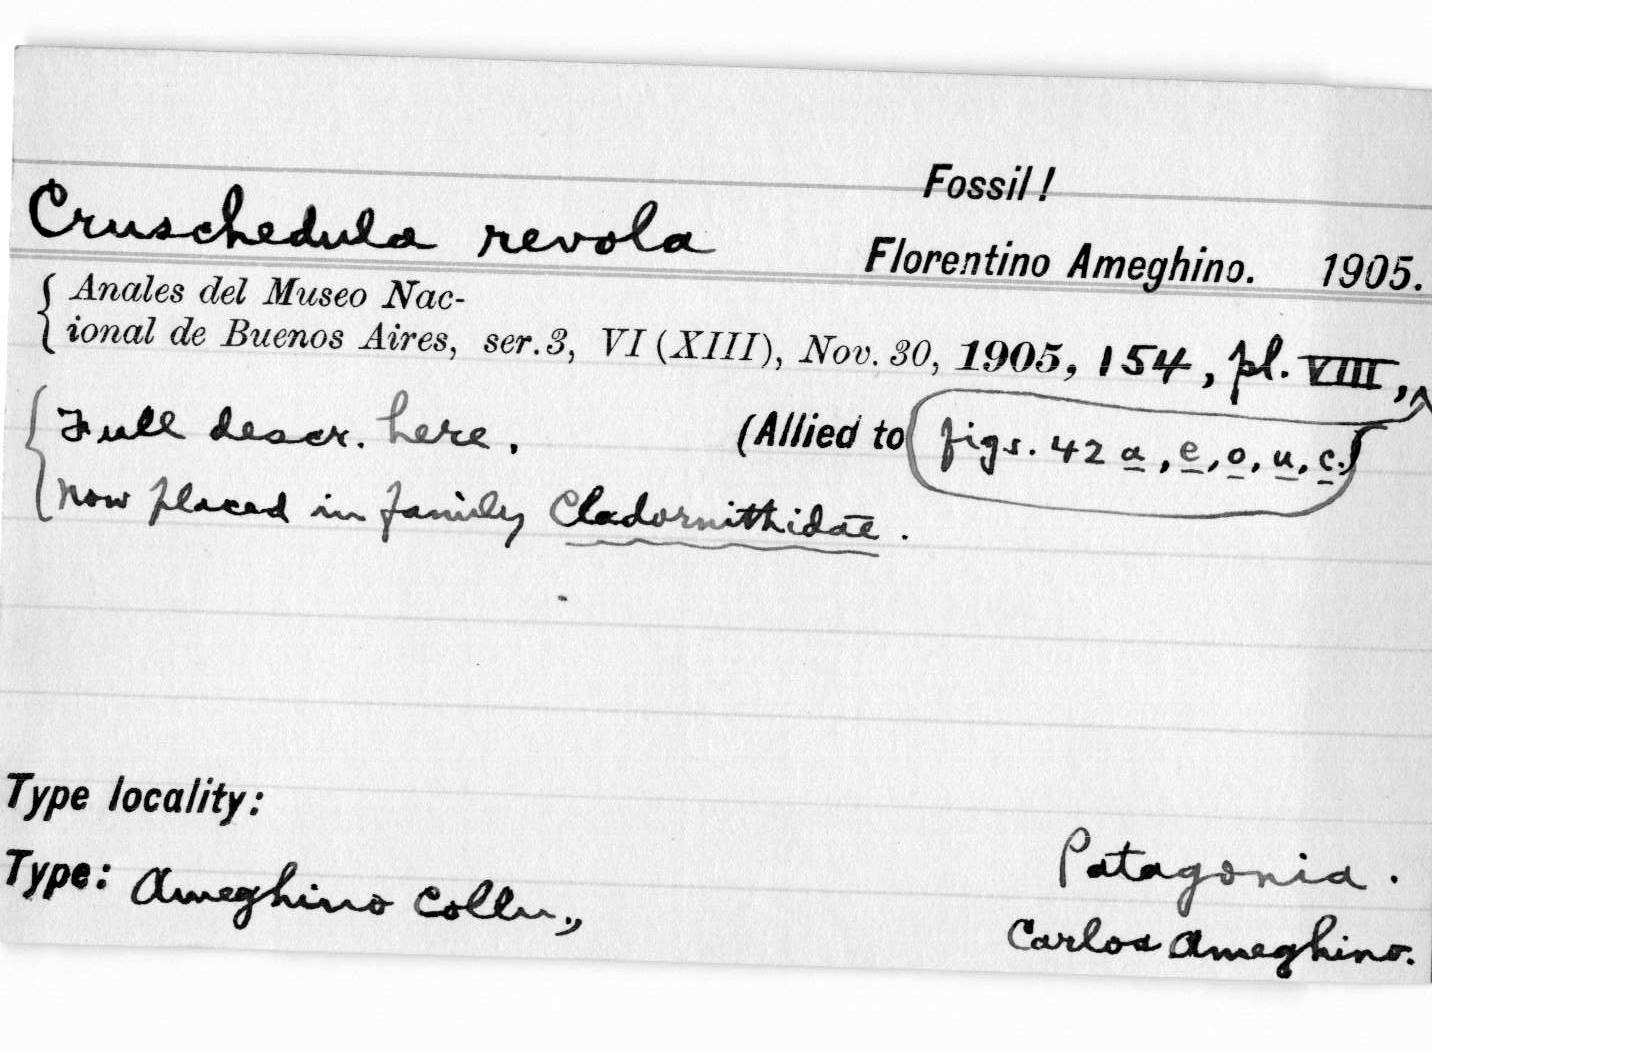 Fossil!
Cruschedula revola Florentino Ameghino. 1905.
Anales del Museo Nac-
ional de Buenos Aires, ser. 3, VI (XIII), Nov. 30, 1905, 154, pl. VIII,
Full descr. here. (Allied to figs. 42 a, e, o, u, c.)
Now placed in family Cladornithidae.
Type locality:
Patagonia.
Type: Ameghino Colln.,
Carlos Ameghino.